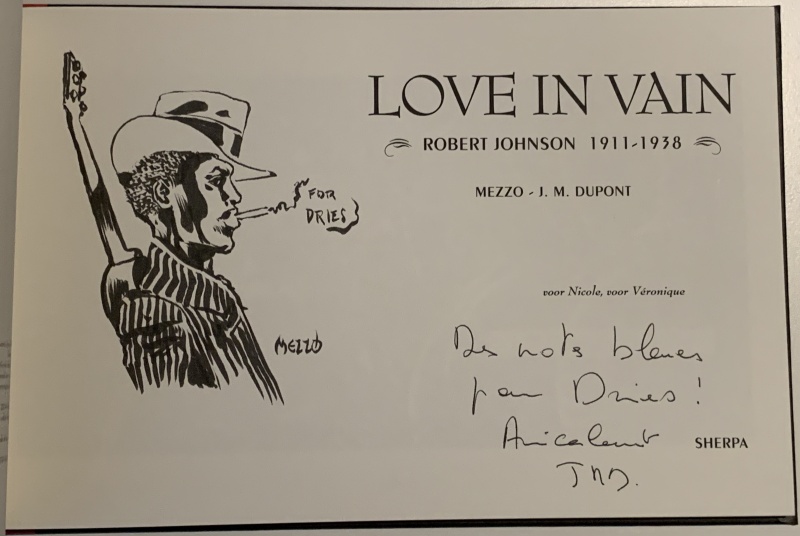 LOVE IN VAIN
ROBERT JOHNSON 1911-1938
MEZZO - J. M. DUPONT
FOR
DRIES
voor Nicole, voor Véronique
MEZZO
Des notes bleues
pour Dries !
Amicalement
SHERPA
JMD.